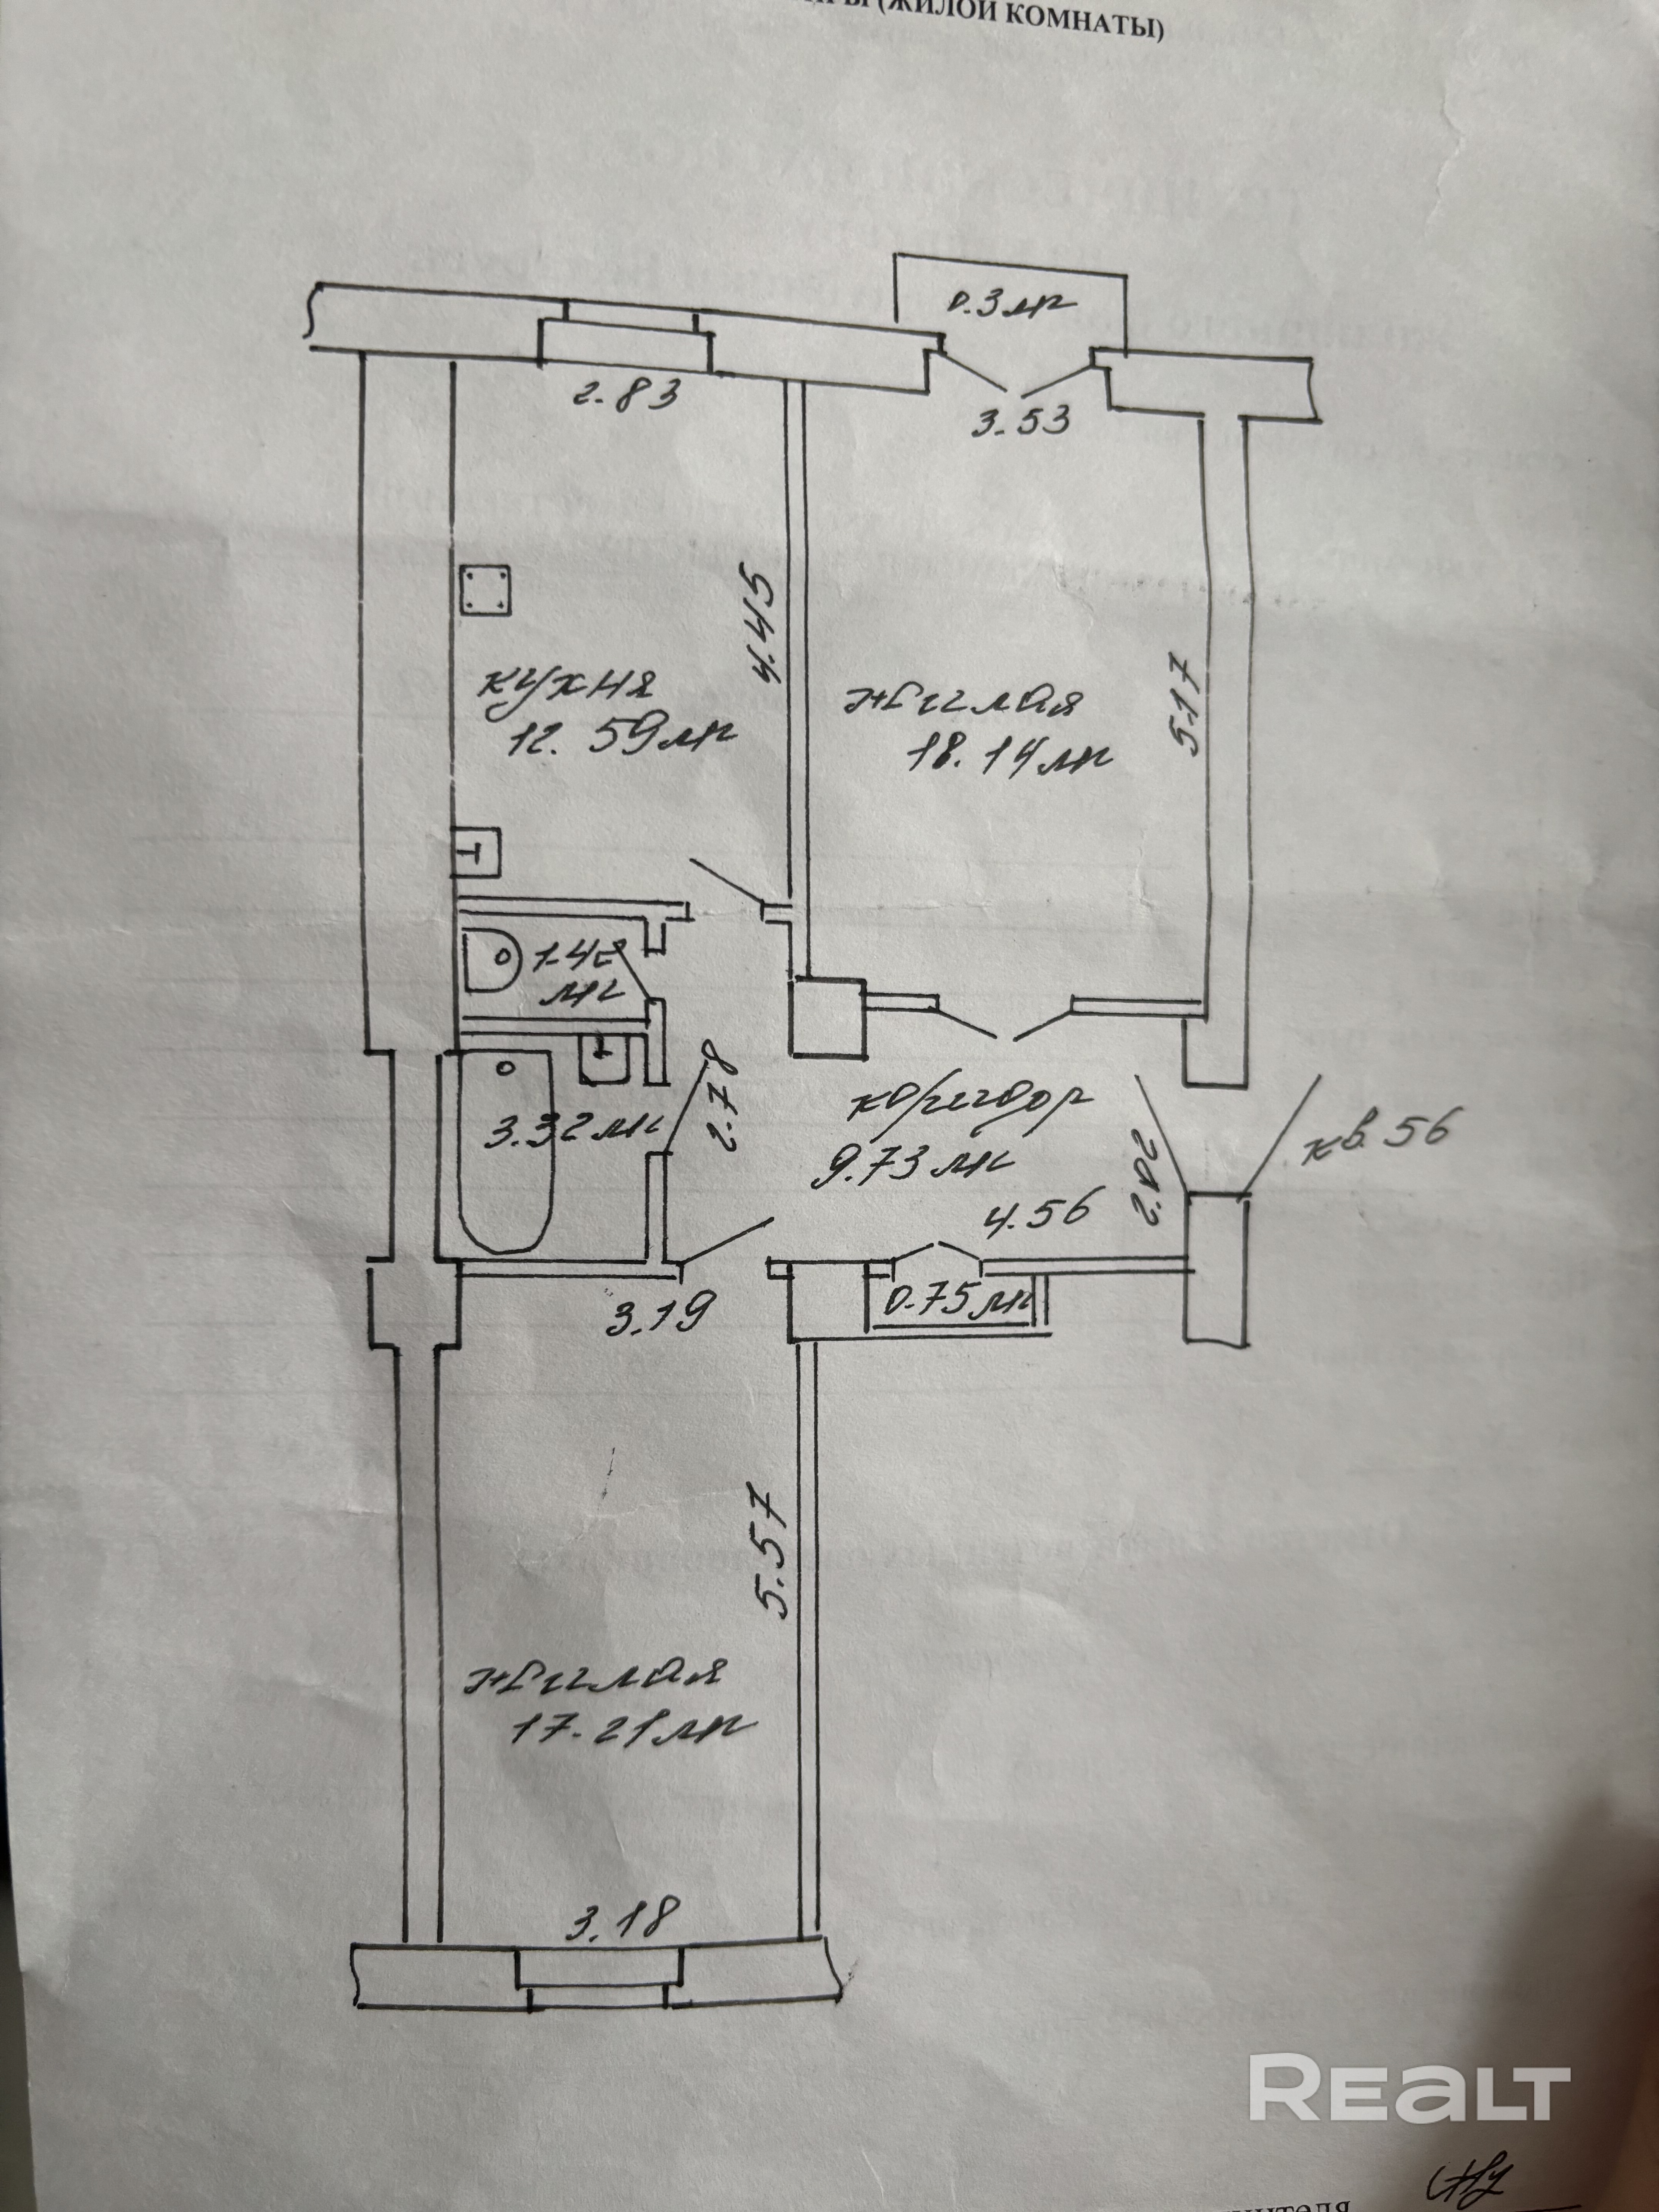 (ЖИЛОЙ КОМНАТЫ)
0.3 м²
2.83
3.53
4.45
5.17
кухня
12.59 м²
жилая
18.14 м²
м²
2.78
3.32 м²
коридор
9.73 м²
2.02
кв. 56
4.56
3.19
0.75 м²
5.57
жилая
17.21 м²
3.18
REALT